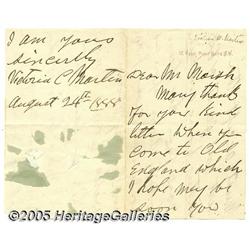 Dear Mr Marsh
Many thanks
for your kind
letter When you
come to Old
England which
I hope may be
soon you
I am yours
sincerely
Victoria C Martin
August 24th 1888
©2005 HeritageGalleries